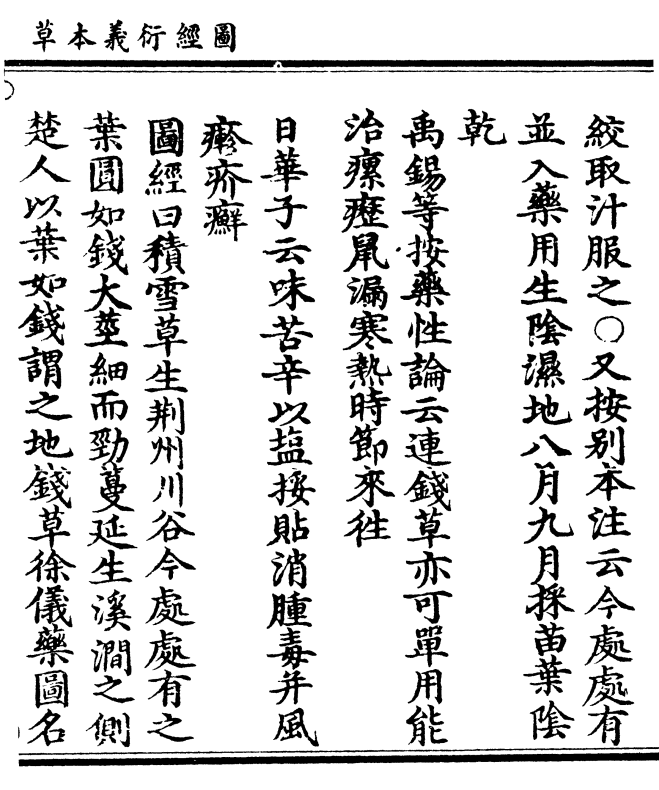 圖經衍義本草
絞取汁服之○又按別本注云今處處有
並入藥用生陰濕地八月九月採苗葉陰
乾
禹錫等按藥性論云連錢草亦可單用能
治瘰癧鼠漏寒熱時節來往
日華子云味苦辛以塩挼貼消腫毒并風
𤺋疥癬
圖經曰積雪草生荆州川谷今處處有之
葉圓如錢大莖細而勁蔓延生溪澗之側
楚人以葉如錢謂之地錢草徐儀藥圖名